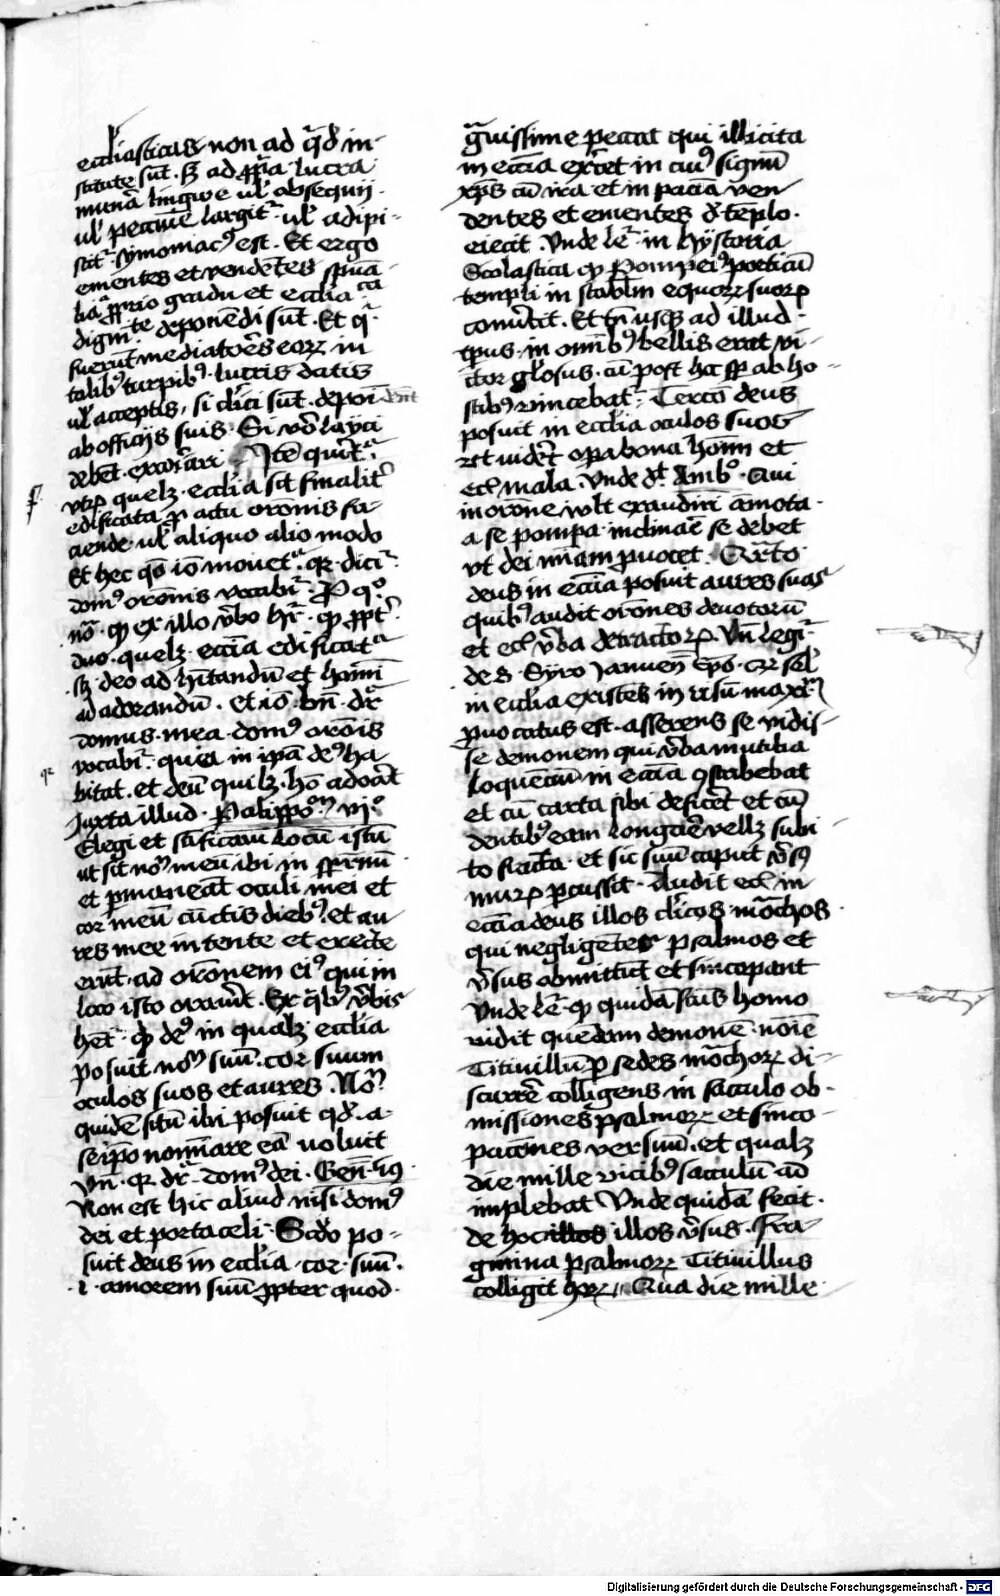 ecclesiasticas non ad qd in-
stitute sut. s ad ppa lucra
muna lingwe ul obsequij
ul pecunie largit ul adipi-
scit symoniac9 est. Et ergo
ementes et vendetes spua-
lia pprio gradu et ecclia
dignite deponedi sut. Et q
fuerut mediatores eorz in
talib9 turpib9 lucris datis
ul acceptis, si clici sut. deponedi
ab officijs suis. Si vo layci
debet. excoicari. Ite querit
vtrz quelz ecclia sit finalit
edificata p actu oronis fa-
ciende ul aliquo alio modo
Et hec qo io mouet. qr dici
dom9 oronis vocabit. P q
no. qp ex illo vbo hr. qp ppt
duo quelz eccia edificat
sz deo ad hitandu et homi
ad adorandu. et io bn dr
domus mea dom9 orois
vocabit. quia in ipa de9 ha
bitat. et deu quilz ho adorat
Juxta illud. Paralippo vij
Elegi et scificaui locu istu
ut sit nom meu ibi in sppm
et pmaneat oculi mei et
cor meu cuctis dieb9. et au
res mee intente et erecte
erut ad oronem ei9 qui in
loco isto orauit. Ex qb9 vbis
het. qp de9 in qualz ecclia
posuit nom suu. cor suum
oculos suos et aures. Nom
quide situ ibi posuit qd a
seipo nominare ea voluit
Vn. qr dr dom9 dei. Gen.
Non est hic aliud nisi dom9
dei et porta celi. Scdo po-
suit deus in ecclia cor suu.
.i. amorem suu ppter quod
grauissime peccat qui illicita
in eccia exercet in cui9 signu
xps cu ira et in pacia ven
dentes et ementes de templo
eiecit. Vnde le in hystoria
Scolastica qp Pompei9 porticu
templi in stablm equorz suorz
conutit. Et tn usq ad illud
tpus in omib9 bellis erat vi-
ctor glosus. cu post hec sp ab ho-
stib9 vincebat. Tercio deus
posuit in ecclia oculos suos
vt videt opa bona homi et
ecia mala. Vnde dt Amb9. Qui
in orone vult exaudiri amota
a se pompa inclinare se debet
vt dei miam puocet. Qrto
deus in eccia posuit aures suas
quib9 audit orones deuotoru
et ecia vba detractorz. Vn legi
de s. Syro Januen epo. qr sel
in ecclia existes in risu maxm
puocatus est. asserens se vidis-
se demonem qui vba inutilia
loquenciu in eccia 9scribebat
et cu carta sibi deficet et cu
dentib9 eam longare vellz subi
to fracta. et sic suu caput vsq
murz pcussit. Audit ecia in
eccia deus illos clicos monchos
qui negligetes psalmos et
vsus obmittut et sincopant
Vnde le qp quida scus homo
vidit quedam demone noie
Titiuillu p sedes monchorz di-
scurre colligens in sacculo ob-
missiones psalmorz et sinco-
paciones versuu. et qualz
die mille vicib9 sacculu ad
implebat Vnde quida fecit
de hoc illos vsus. Fra
gmina psalmorz Titiuillus
colligit horz. Qua die mille